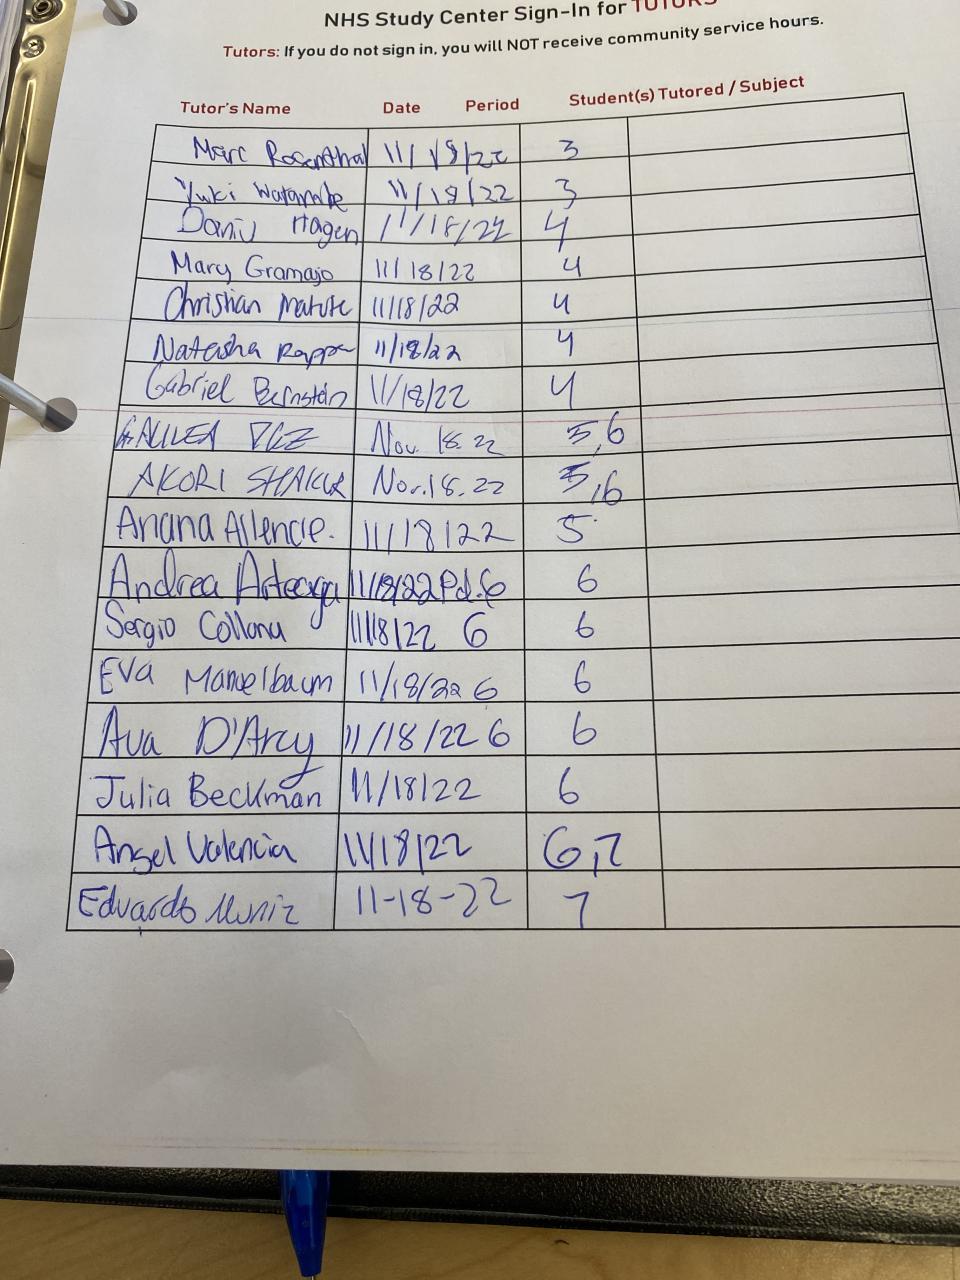 NHS Study Center Sign-In for TUTORS
Tutors: If you do not sign in, you will NOT receive community service hours.
Tutor's Name Date Period Student(s) Tutored / Subject
Marc Rosenthal 11/18/22 3
Yuki Watanabe 11/18/22 3
Hagen 11/18/22 4
Mary Gramajo 11/18/22 4
Christian Matute 11/18/22 4
Natasha 11/18/22 4
Gabriel Bernstein 11/18/22 4
GALILEA Nov. 18. 22 5,6
AKORI SHAKUR Nov. 18. 22 5,6
11/18/22 5
Andrea Arteaga 11/18/22 Pd. 6 6
Sergio 11/18/22 6 6
Eva Mandelbaum 11/18/22 6 6
Ava D'Arcy 11/18/22 6 6
Julia Beckman 11/18/22 6
Angel Valencia 11/18/22 6,7
Eduardo Muniz 11-18-22 7